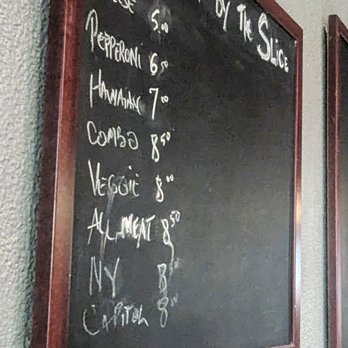 by the Slice
5.00
Pepperoni 6.50
Hawaiian 7.00
Combo 8.50
Veggie 8.00
All Meat 8.50
NY
Capitol 8.00